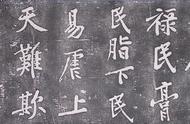 禄民膏
民脂下民
易虐上
天難欺